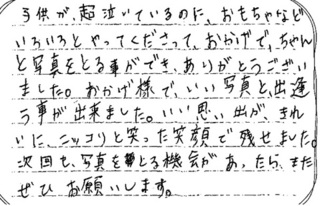 子供が、超泣いているのに、おもちゃなど
いろいろとやってくださって、おかげで、ちゃん
と写真をとる事ができ、ありがとうござい
ました。おかげ様で、いい写真と、出逢
う事が出来ました。いい思い出が、きれ
いに、ニッコリと笑った笑顔で残せました。
次回も、写真をとる機会が、あったら、また
ぜひお願いします。